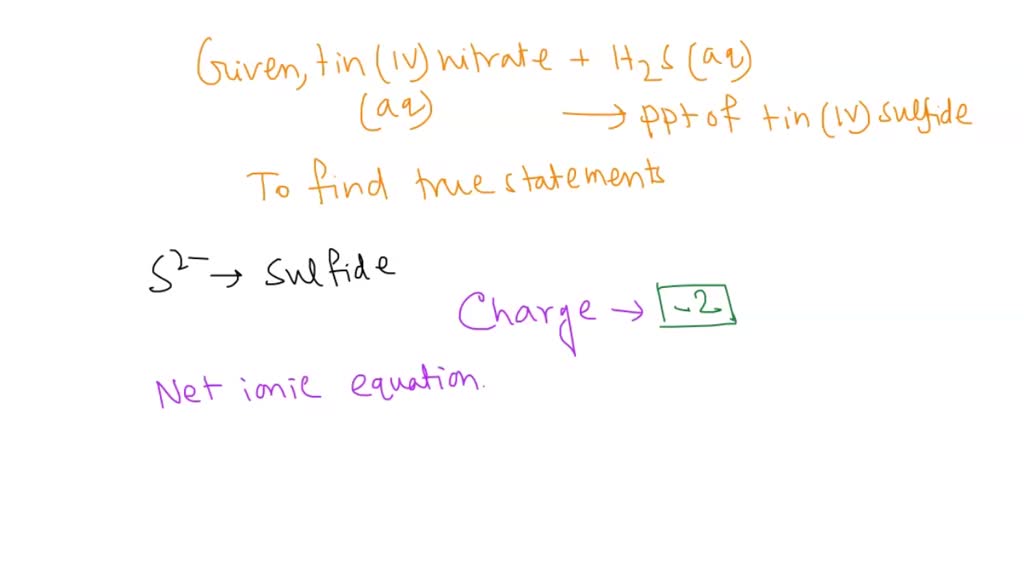 Given, tin (IV) nitrate + H2S (aq)
(aq) → ppt of tin (IV) sulfide
To find true statements
S2- → sulfide
Charge → -2
Net ionic equation.